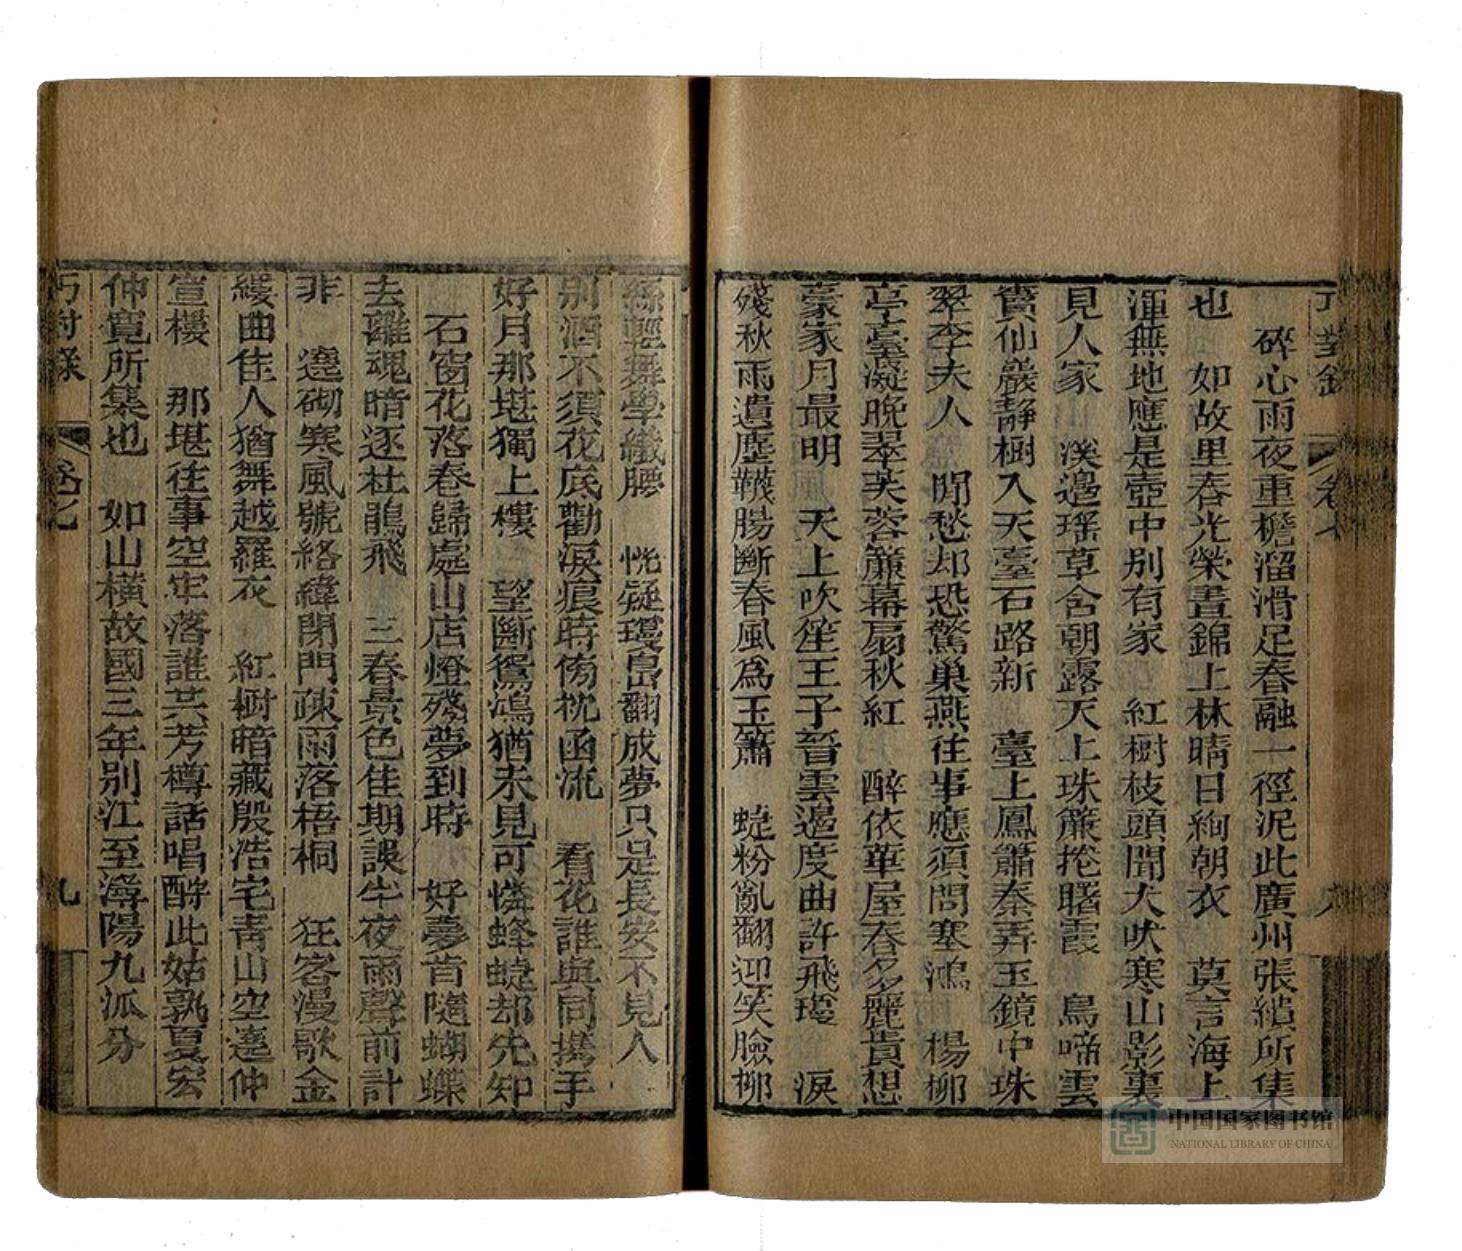 碎心雨夜重檐溜滑足春融一徑泥此廣州張縝所集
也　如故里春光榮晝錦上林晴日絢朝衣　莫言海上
渾無地應是壺中别有家　紅樹枝頭聞犬吠寒山影裏
見人家　溪邊瑶草含朝露天上珠簾捲曙霞　鳥啼雲
竇仙巖靜樹入天臺石路新　臺上鳳簫秦弄玉鏡中珠
翠李夫人　閒愁却恐驚巢燕往事應須問塞鴻　楊柳
亭臺凝晚翠芙蓉簾幕扇秋紅　醉依華屋春多麗貴想
豪家月最明　天上吹笙王子晉雲邊度曲許飛瓊　淚
殘秋雨遺塵韈腸斷春風爲玉簫　蜨粉亂翻迎笑臉柳
絲輕舞學纖腰　恍疑瓊島翻成夢只是長安不見人
别酒不須花底勸淚痕時傍枕函流　看花誰與同攜手
好月那堪獨上樓　望斷鴛鴻猶未見可憐蜂蜨却先知
石窗花落春歸處山店燈殘夢到時　好夢肯隨蝴蝶
去離魂暗逐杜鵑飛　三春景色佳期誤半夜雨聲前計
非　邊砌寒風號絡緯閉門疎雨落梧桐　狂客漫歌金
縷曲佳人猶舞越羅衣　紅樹暗藏殷浩宅青山空遶仲
宣樓　那堪往事空牢落誰共芳樽話唱酬此姑孰夏宏
仲寬所集也　如山橫故國三年别江至潯陽九派分
巧對録
卷七
九